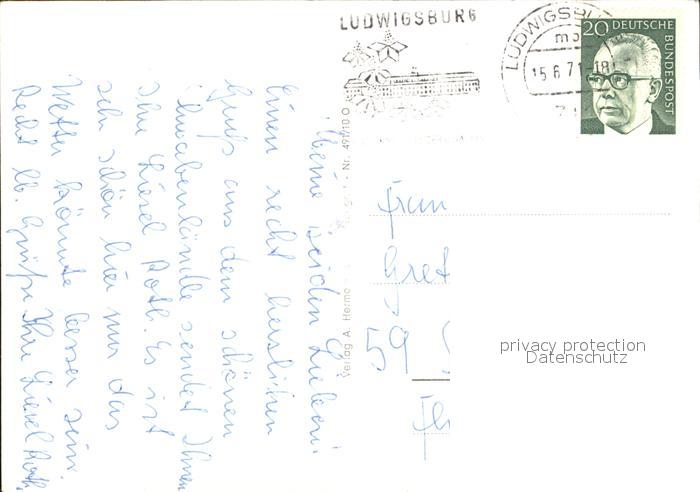 LUDWIGSBURG
LUDWIGSBU
15.6.71-18
20 DEUTSCHE
BUNDESPOST
Meine beiden Lieben!
Einen recht herzlichen
Gruß aus dem schönen
Schwabenländle sendet Ihnen
Ihre Liesel Roth. Es ist
sehr schön hier nur das
Wetter könnte besser sein.
Recht lb. Grüße Ihre Liesel Roth.
Verlag A. Herme
Nr. 491/10 O
Frau
Gret
59
privacy protection
Datenschutz